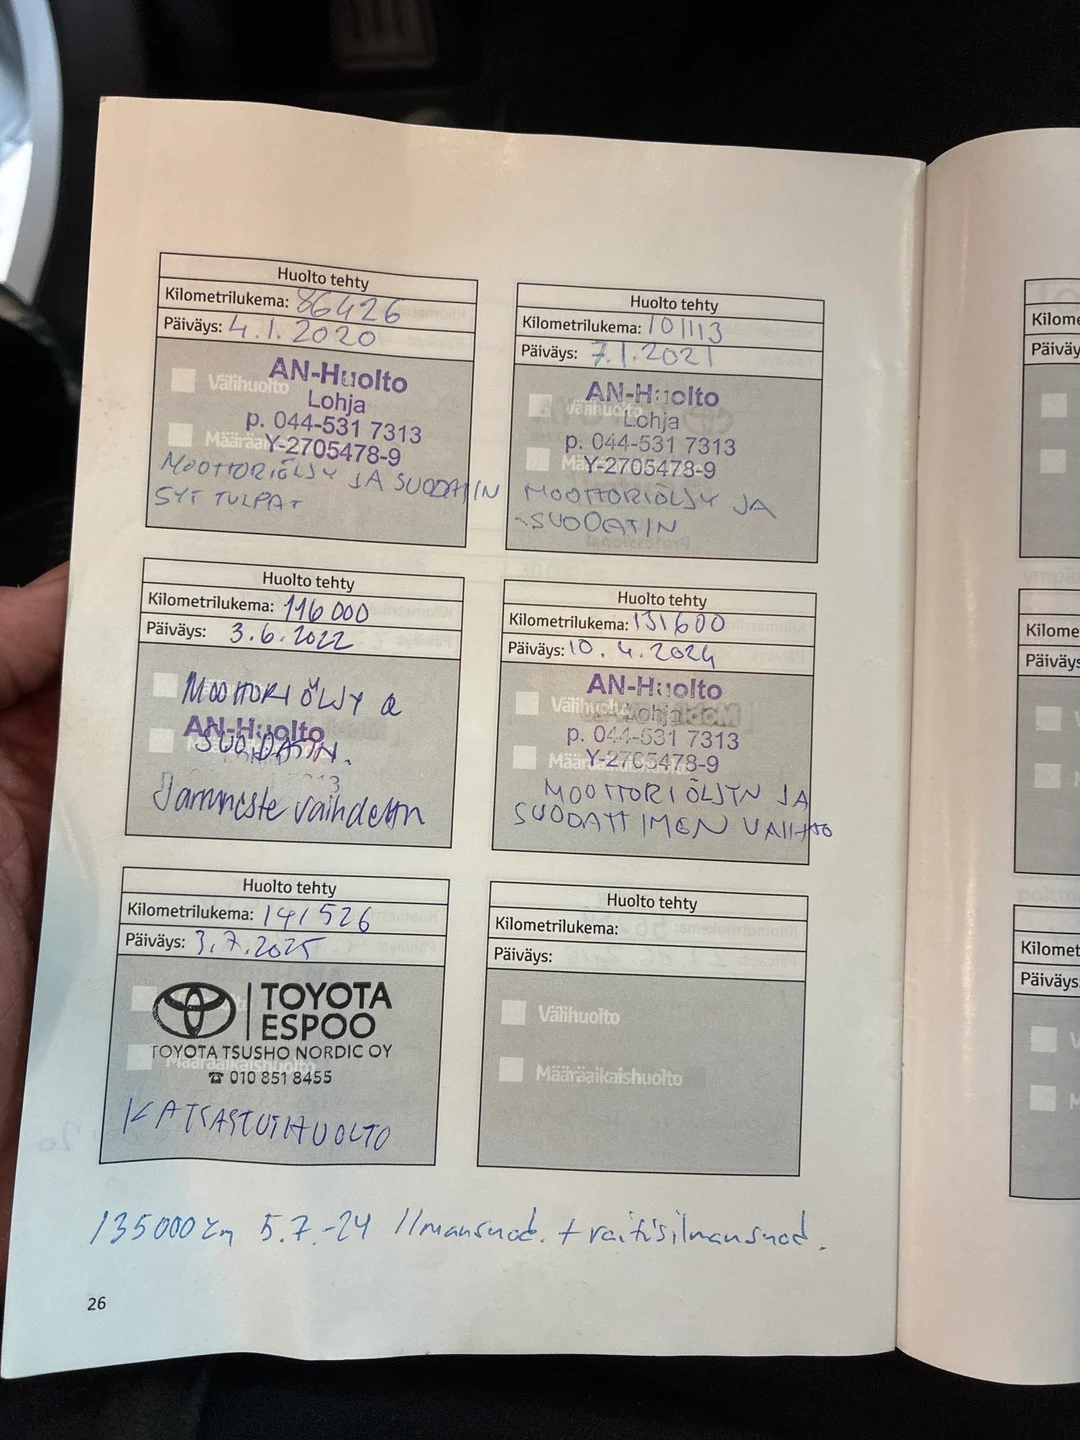 Huolto tehty
Kilometrilukema: 86426
Päiväys: 4.1.2020
Välihuolto
AN-Huolto
Lohja
p. 044-531 7313
Y-2705478-9
MOOTTORIÖLJY JA SUODATIN
SYT TULPAT
Huolto tehty
Kilometrilukema: 101113
Päiväys: 7.1.2021
Välihuolto
AN-Huolto
Lohja
p. 044-531 7313
Y-2705478-9
MOOTTORIÖLJY JA
SUODATIN
Huolto tehty
Kilometrilukema: 116 000
Päiväys: 3.6.2022
MOOTTORIÖLJY &
AN-Huolto
SUODATIN.
Jarruneste vaihdettu
Huolto tehty
Kilometrilukema: 131600
Päiväys: 10.4.2024
Välihuolto
AN-Huolto
Lohja
p. 044-531 7313
Y-2705478-9
Määräaikaishuolto
MOOTTORIÖLJYN JA
SUODATTIMEN VAIHTO
Huolto tehty
Kilometrilukema: 141526
Päiväys: 3.7.2025
TOYOTA
ESPOO
TOYOTA TSUSHO NORDIC OY
Määräaikaishuolto
☎ 010 851 8455
KATSASTUSHUOLTO
Huolto tehty
Kilometrilukema:
Päiväys:
Välihuolto
Määräaikaishuolto
135000 km 5.7.-24 Ilmansuod. + raitisilmansuod.
26
Kilome
Päiväy
Kilome
Päiväy
Kilomet
Päiväys